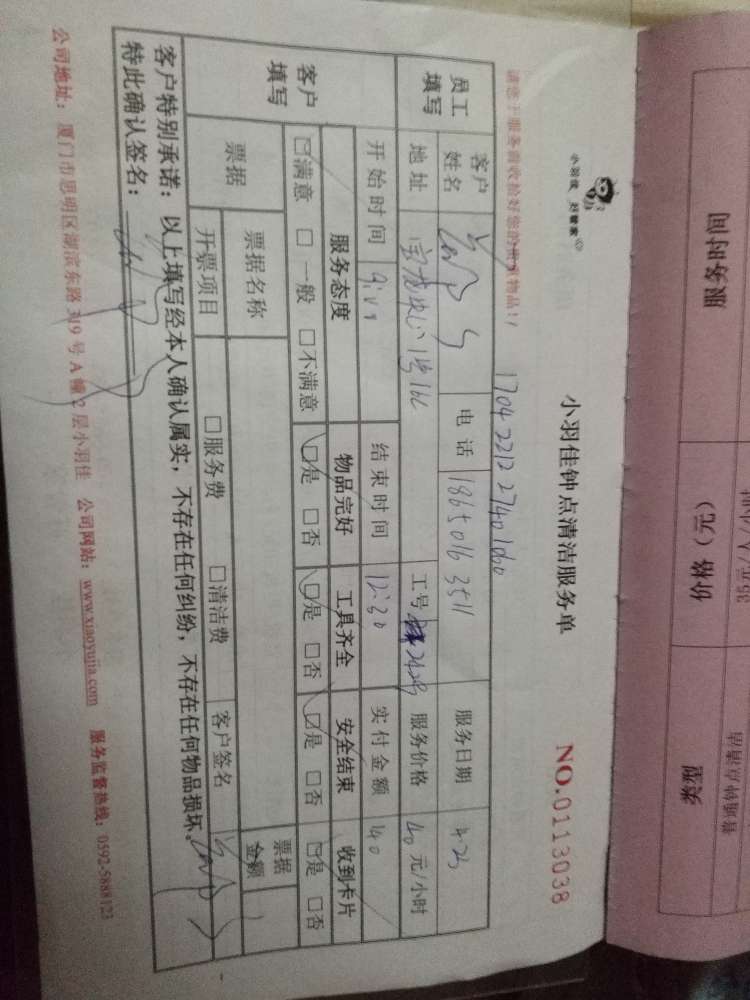 小羽佳 好管家
小羽佳钟点清洁服务单
NO.0113038
170422122740160
请您于服务前收拾好您的贵重物品!
员工填写
客户姓名
电话 18650163511
服务日期 4.23
地址 宝龙中心1号
工号 2429
服务价格 40 元/小时
客户填写
开始时间
结束时间 12:30
实付金额 140
服务态度 物品完好 工具齐全 安全结束 收到卡片
☑满意 □一般 □不满意 ☑是 □否 ☑是 □否 ☑是 □否 ☑是 □否
票据
票据名称
票据金额
开票项目 □服务费 □清洁费 客户签名
客户特别承诺:以上填写经本人确认属实,不存在任何纠纷,不存在任何物品损坏。
特此确认签名:
公司地址:厦门市思明区湖滨东路 号A幢2层小羽佳 公司网站:www.xiaoyujia.com 服务监督热线:0592-5888123
服务时间
价格(元)
类型